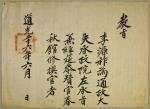 敎旨
李源祚爲通政大
夫承政院左承旨
兼經筵參贊官春
秋館修撰官者
道光十六年六月 日